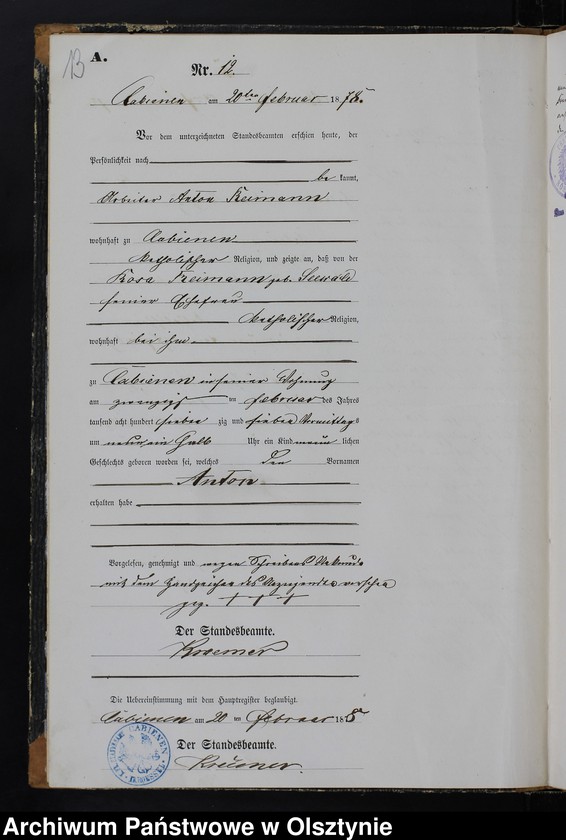 13
A.
Nr. 12.
Cabienen am 20ten Februar 1878.
Vor dem unterzeichneten Standesbeamten erschien heute, der
Persönlichkeit nach
be kannt,
Arbeiter Anton Reimann
wohnhaft zu Cabienen
katholischer Religion, und zeigte an, daß von der
Rosa Reimann geb. Seewald
seiner Ehefrau
katholischer Religion,
wohnhaft bei ihm
zu Cabienen in seiner Wohnung
am zwanzigst im Februar des Jahres
tausend acht hundert sieben zig und Vormittags
um neun ein halb Uhr ein Kind männ lichen
Geschlechts geboren worden sei, welches den Vornamen
Anton
erhalten habe
Vorgelesen, genehmigt und wegen Schreibens Unkunde
mit dem Handzeichen des Anzeigenden versehen
gez. + + +
Der Standesbeamte.
Die Uebereinstimmung mit dem Hauptregister beglaubigt.
Cabienen am 20 ten Februar 188
Der Standesbeamte.
CABIENEN
Archiwum Państwowe w Olsztynie